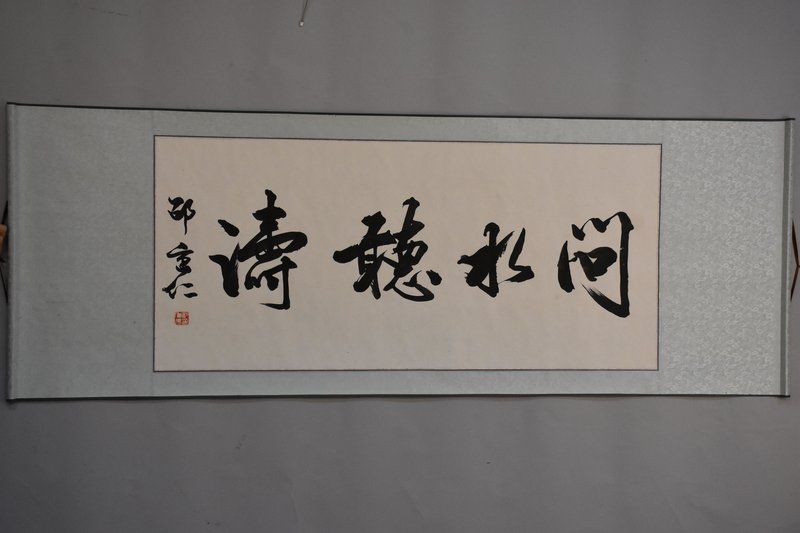 問水聽濤
邵重仁